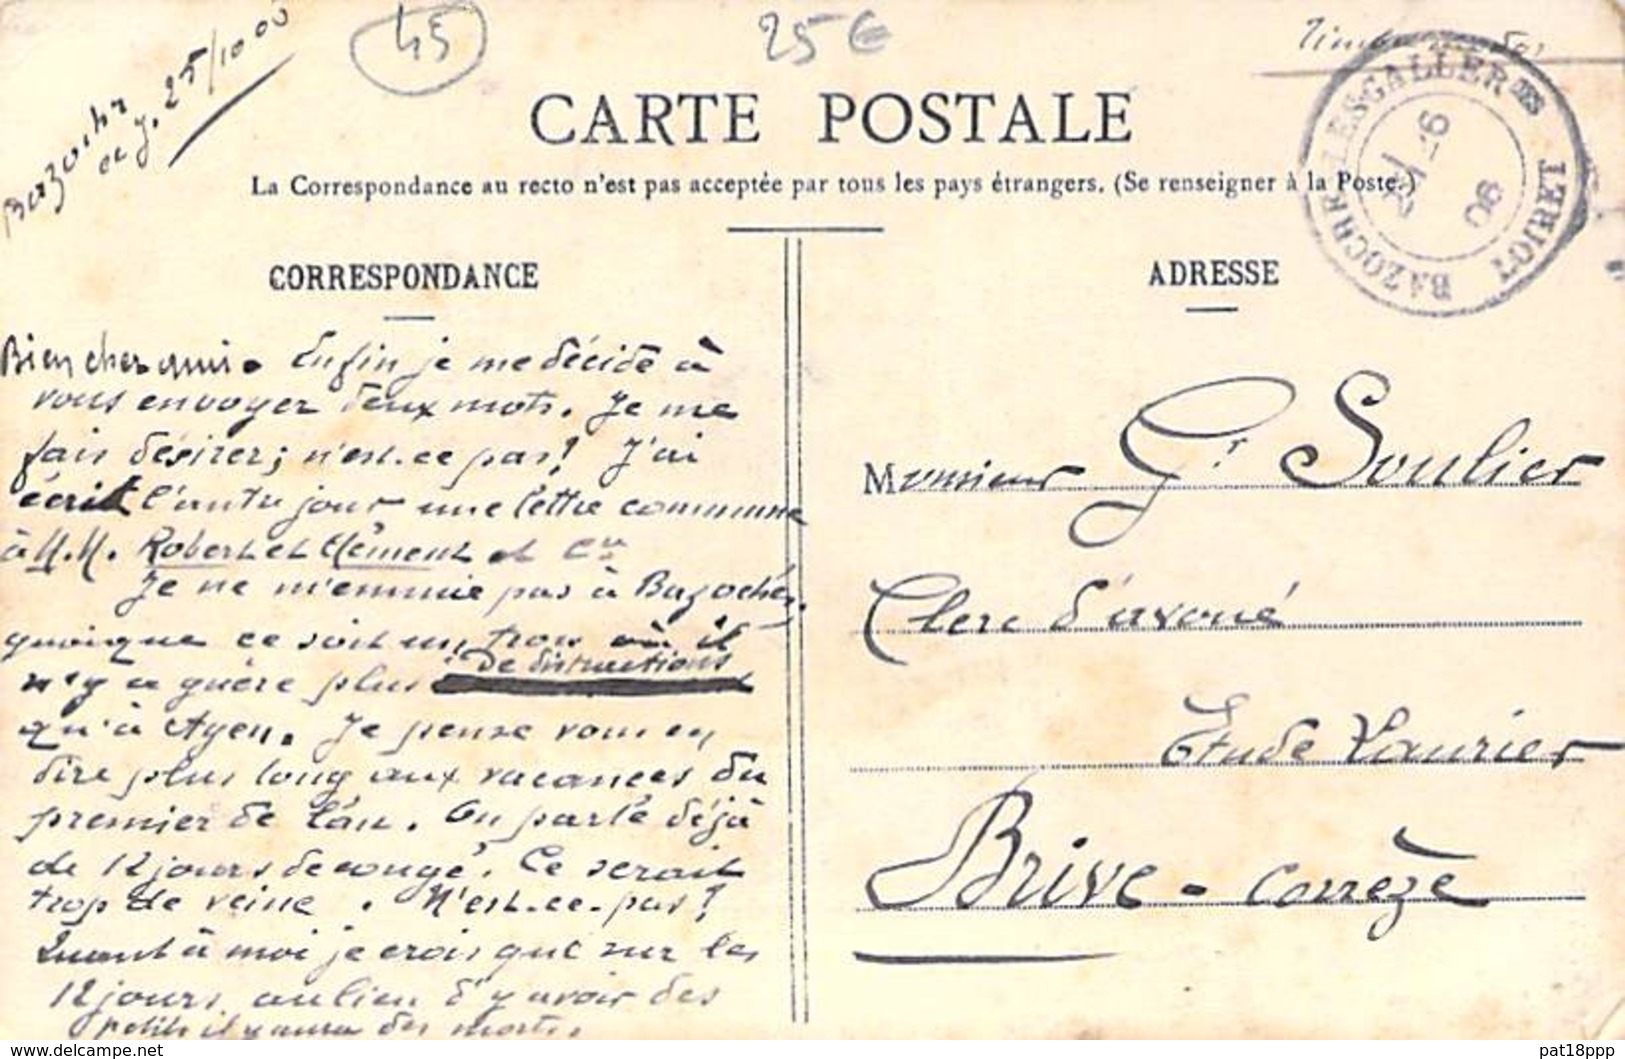 45
25€
25/10 06
CARTE POSTALE
La Correspondance au recto n'est pas acceptée par tous les pays étrangers. (Se renseigner à la Poste.)
BAZOCHES LES GALLERANDES LOIRET
06
CORRESPONDANCE
ADRESSE
Bien cher ami. Enfin je me décide à
vous envoyer deux mots. Je me
fais désirer; n'est-ce pas! J'ai
écrit l'autre jour une lettre commune
à M.M. Robert et Clément et Cie
Je ne m'ennuie pas à Bazoches,
quoique ce soit un trou où il
n'y a guère plus de distractions
qu'à Ayen. Je pense vous en
dire plus long aux vacances du
premier de l'an. On parle déjà
de 12 jours de congé. Ce serait
trop de veine. N'est-ce-pas!
Quant à moi je crois que sur les
12 jours, au lieu d'y avoir des
petits il y aura des morts.
Monsieur Gr Soulier
Clerc d'avoué
Etude Laurier
Brive - Corrèze
pat18ppp